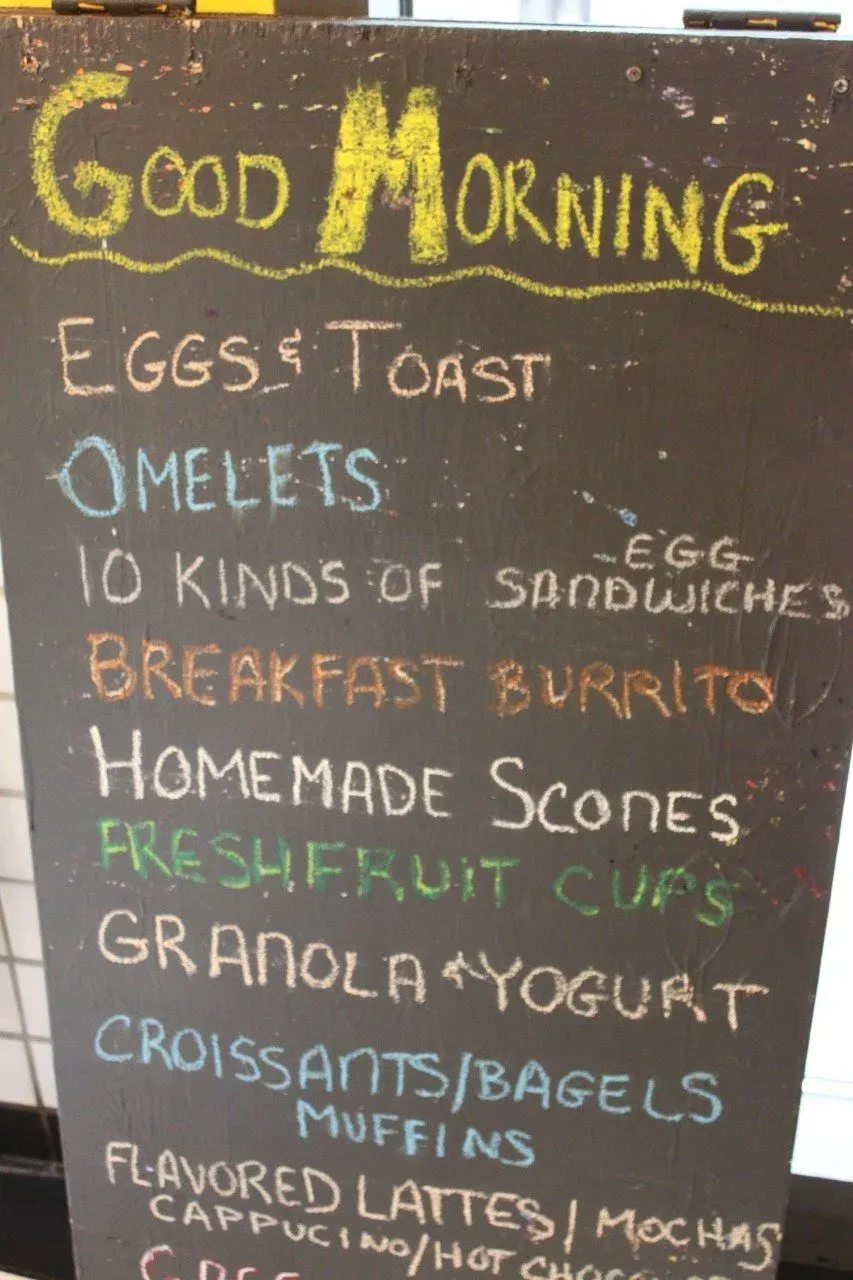 GOOD MORNING
EGGS & TOAST
OMELETS
10 KINDS OF EGG SANDWICHES
BREAKFAST BURRITO
HOMEMADE SCONES
FRESH FRUIT CUPS
GRANOLA & YOGURT
CROISSANTS/BAGELS
MUFFINS
FLAVORED LATTES/MOCHAS
CAPPUCINO/HOT